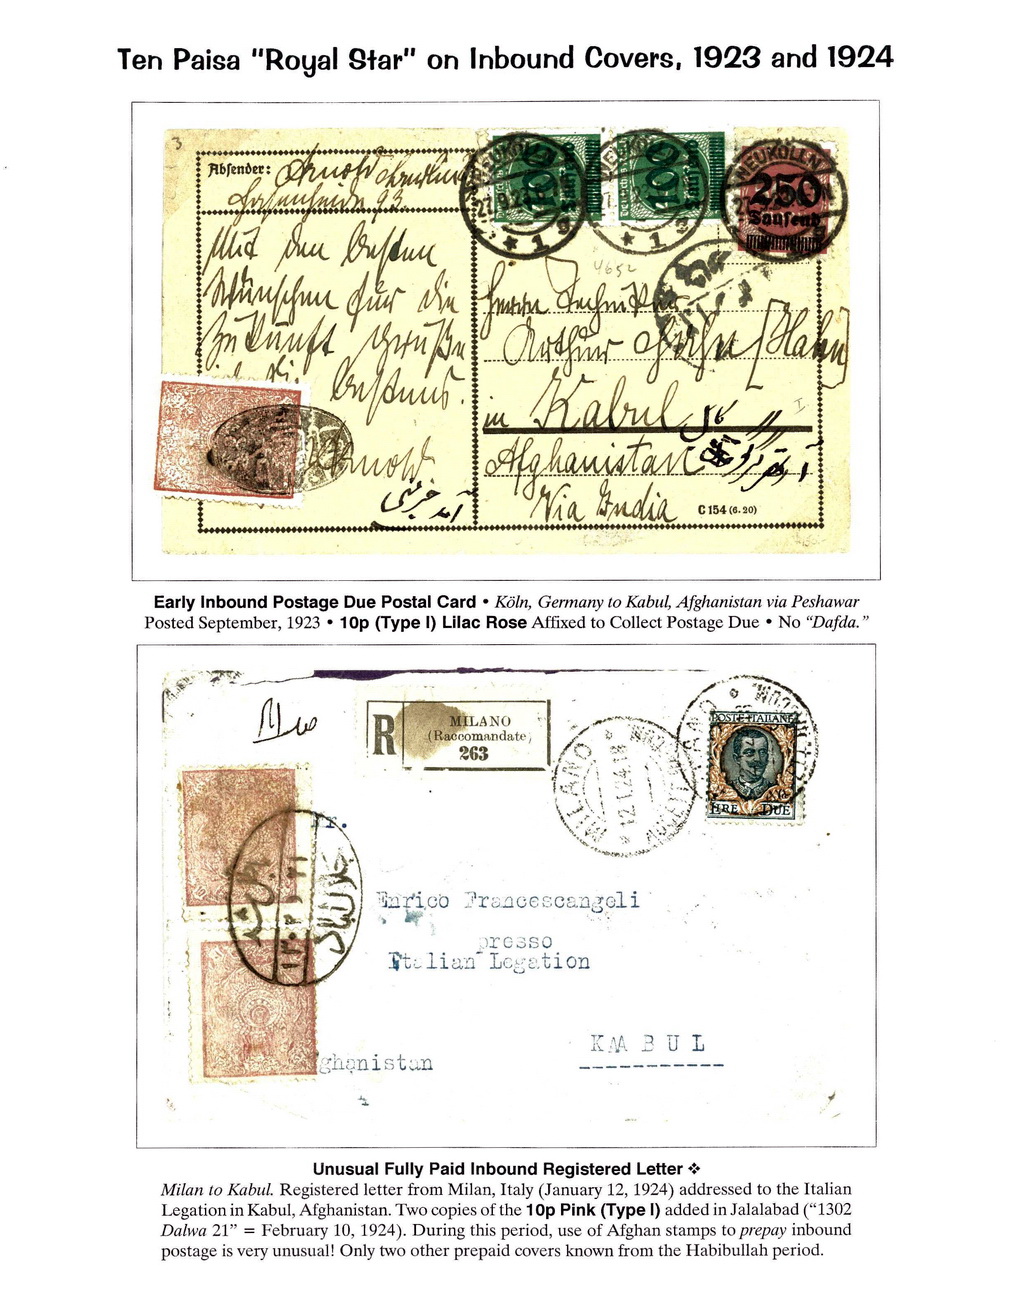 Ten Paisa "Royal Star" on Inbound Covers, 1923 and 1924
3
Absender: Arnold
93.
Mit den besten
Wünschen für die
Zukunft grüßt
bestens.
Arnold
NEUKÖLLN
100
100
250
Tausend
4652
Herrn Techniker
Arthur
in Kabul
Afghanistan
Via India
C 154 (6. 20)
Early Inbound Postage Due Postal Card • Köln, Germany to Kabul, Afghanistan via Peshawar
Posted September, 1923 • 10p (Type I) Lilac Rose Affixed to Collect Postage Due • No "Dafda."
R
MILANO
(Raccomandate)
263
MILANO
12.1.24
POSTE ITALIANE
LIRE DUE
جلال آباد
Enrico Francescangeli
presso
Italian Legation
KABUL
ghanistan
Unusual Fully Paid Inbound Registered Letter ❖
Milan to Kabul. Registered letter from Milan, Italy (January 12, 1924) addressed to the Italian
Legation in Kabul, Afghanistan. Two copies of the 10p Pink (Type I) added in Jalalabad ("1302
Dalwa 21" = February 10, 1924). During this period, use of Afghan stamps to prepay inbound
postage is very unusual! Only two other prepaid covers known from the Habibullah period.